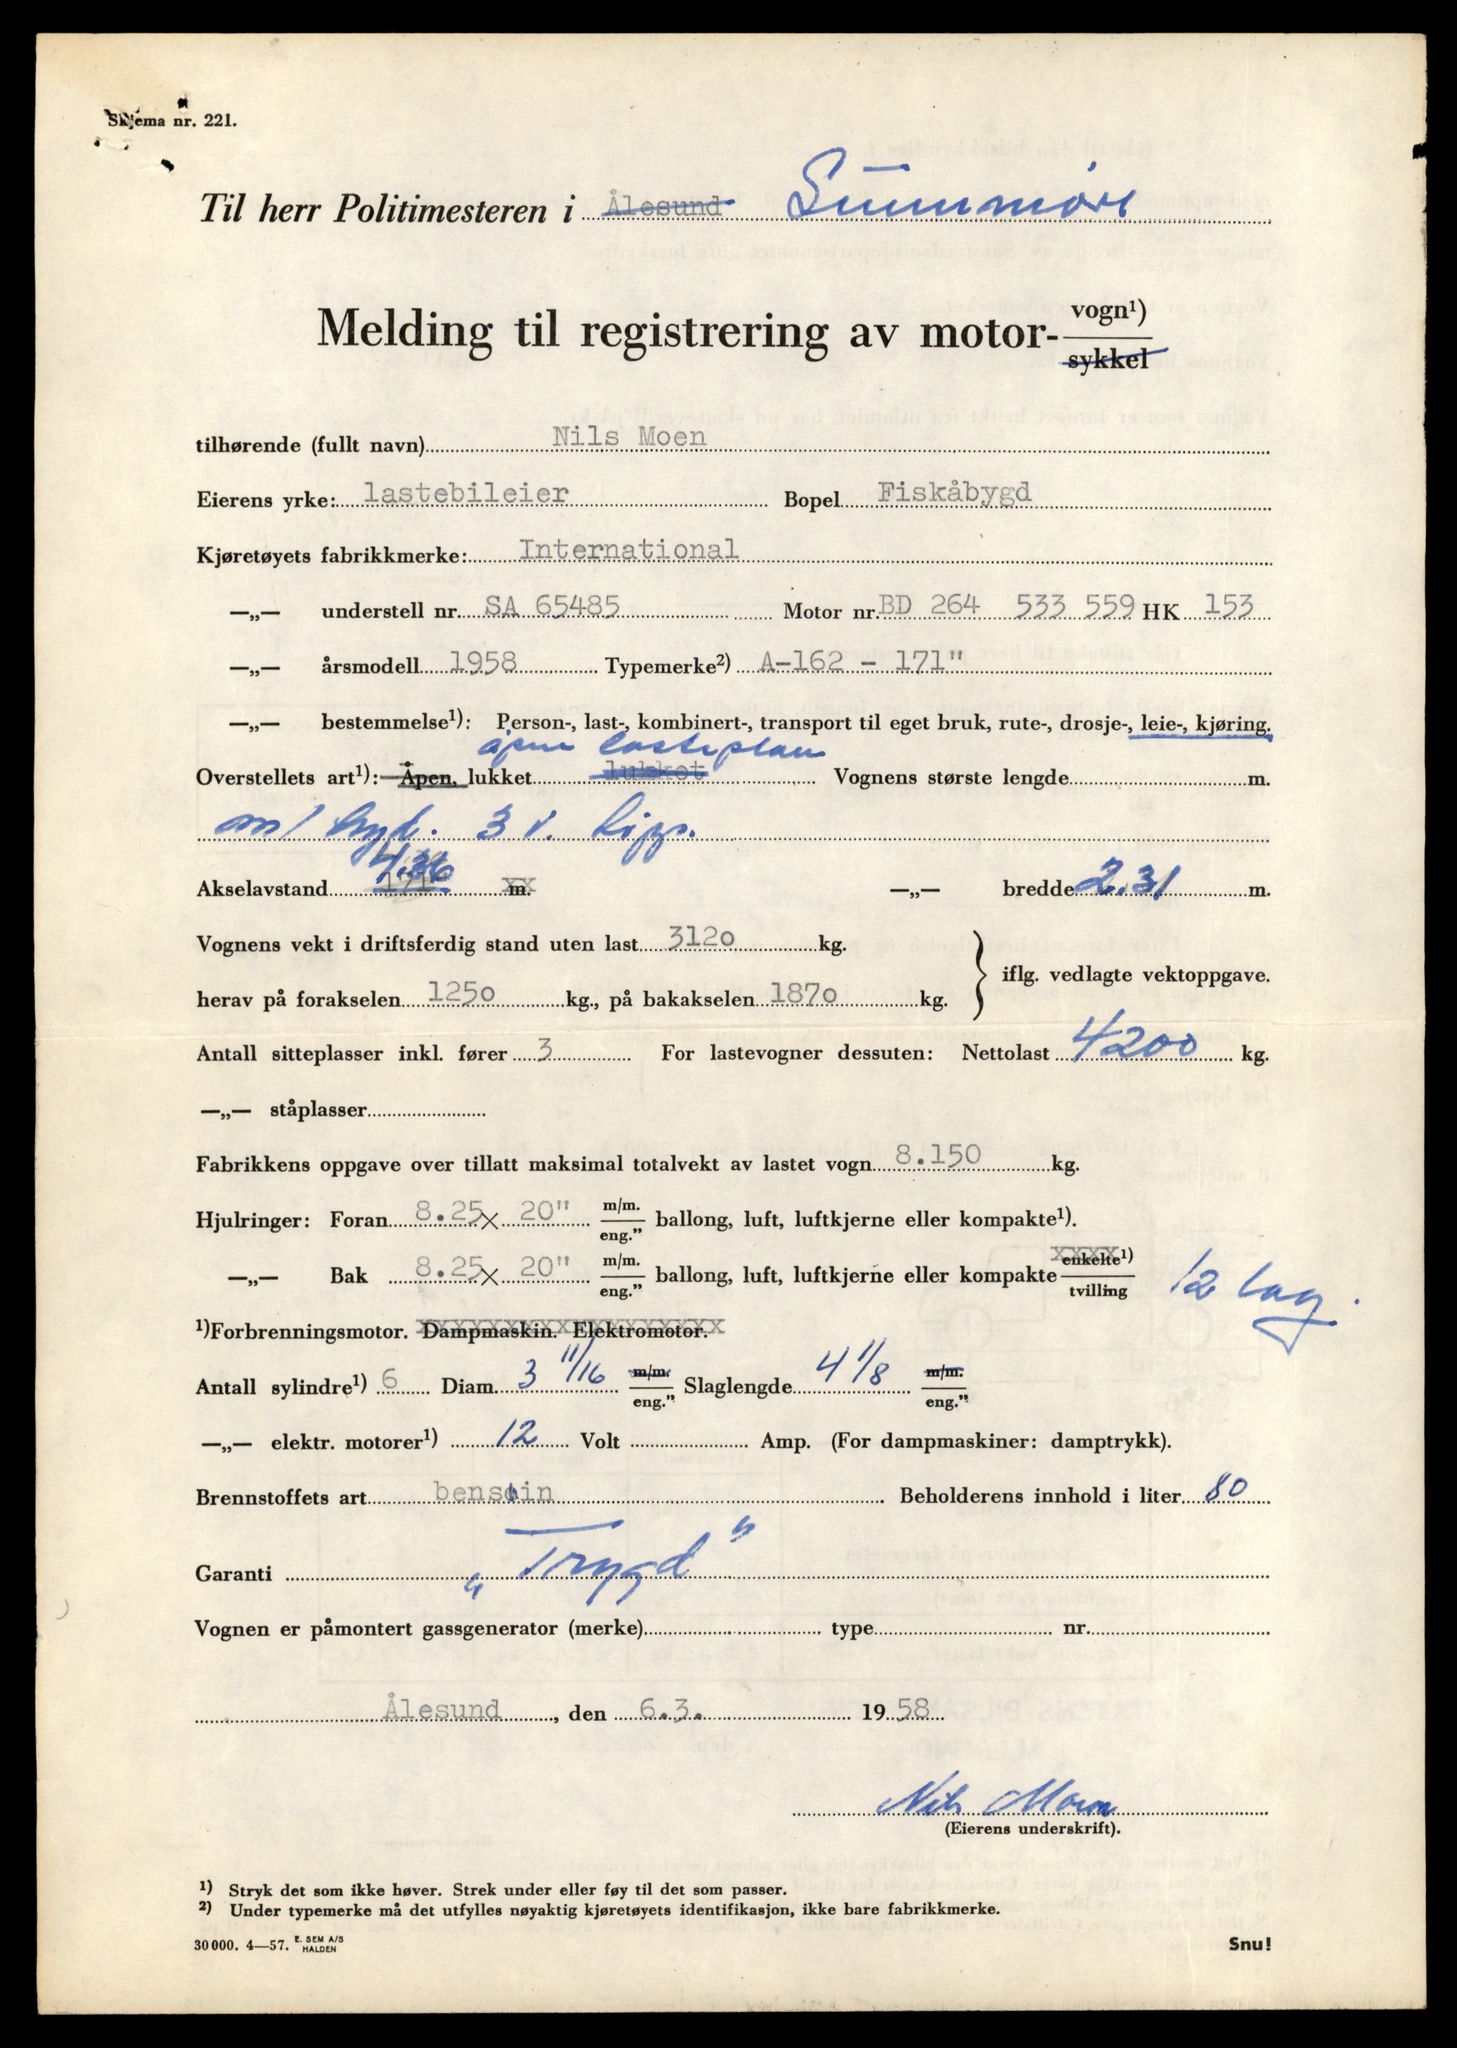 Skjema nr. 221.
Til herr Politimesteren i Ålesund Sunnmöre
Melding til registrering av motor- vogn¹) sykkel
tilhørende (fullt navn) Nils Moen
Eierens yrke: lastebileier Bopel Fiskåbygd
Kjøretøyets fabrikkmerke: International
—„— understell nr. SA 65485 Motor nr. BD 264 533 559 HK 153
—„— årsmodell 1958 Typemerke²) A-162 - 171"
—„— bestemmelse¹): Person-, last-, kombinert-, transport til eget bruk, rute-, drosje-, leie-, kjøring.
åpen lasteplan
Overstellets art¹): Åpen, lukket lukket Vognens største lengde m.
m/ hyd. 3 v. tipp.
Akselavstand 4.36 m. —„— bredde 2.31 m.
Vognens vekt i driftsferdig stand uten last 3120 kg.
herav på forakselen 1250 kg., på bakakselen 1870 kg. } iflg. vedlagte vektoppgave.
Antall sitteplasser inkl. fører 3 For lastevogner dessuten: Nettolast 4200 kg.
—„— ståplasser
Fabrikkens oppgave over tillatt maksimal totalvekt av lastet vogn 8.150 kg.
Hjulringer: Foran 8.25 x 20" m/m. eng." ballong, luft, luftkjerne eller kompakte¹).
—„— Bak 8.25 x 20" m/m. eng." ballong, luft, luftkjerne eller kompakte enkelte¹) tvilling 12 lag.
¹)Forbrenningsmotor. Dampmaskin. Elektromotor.
Antall sylindre¹) 6 Diam. 3 11/16 m/m. eng." Slaglengde 4 1/8 m/m. eng."
—„— elektr. motorer¹) 12 Volt Amp. (For dampmaskiner: damptrykk).
Brennstoffets art bensin Beholderens innhold i liter 80
Garanti „Trygd"
Vognen er påmontert gassgenerator (merke) type nr.
Ålesund, den 6.3. 1958
Nils Moen
(Eierens underskrift).
¹) Stryk det som ikke høver. Strek under eller føy til det som passer.
²) Under typemerke må det utfylles nøyaktig kjøretøyets identifikasjon, ikke bare fabrikkmerke.
30 000. 4—57. E. SEM A/S HALDEN Snu!